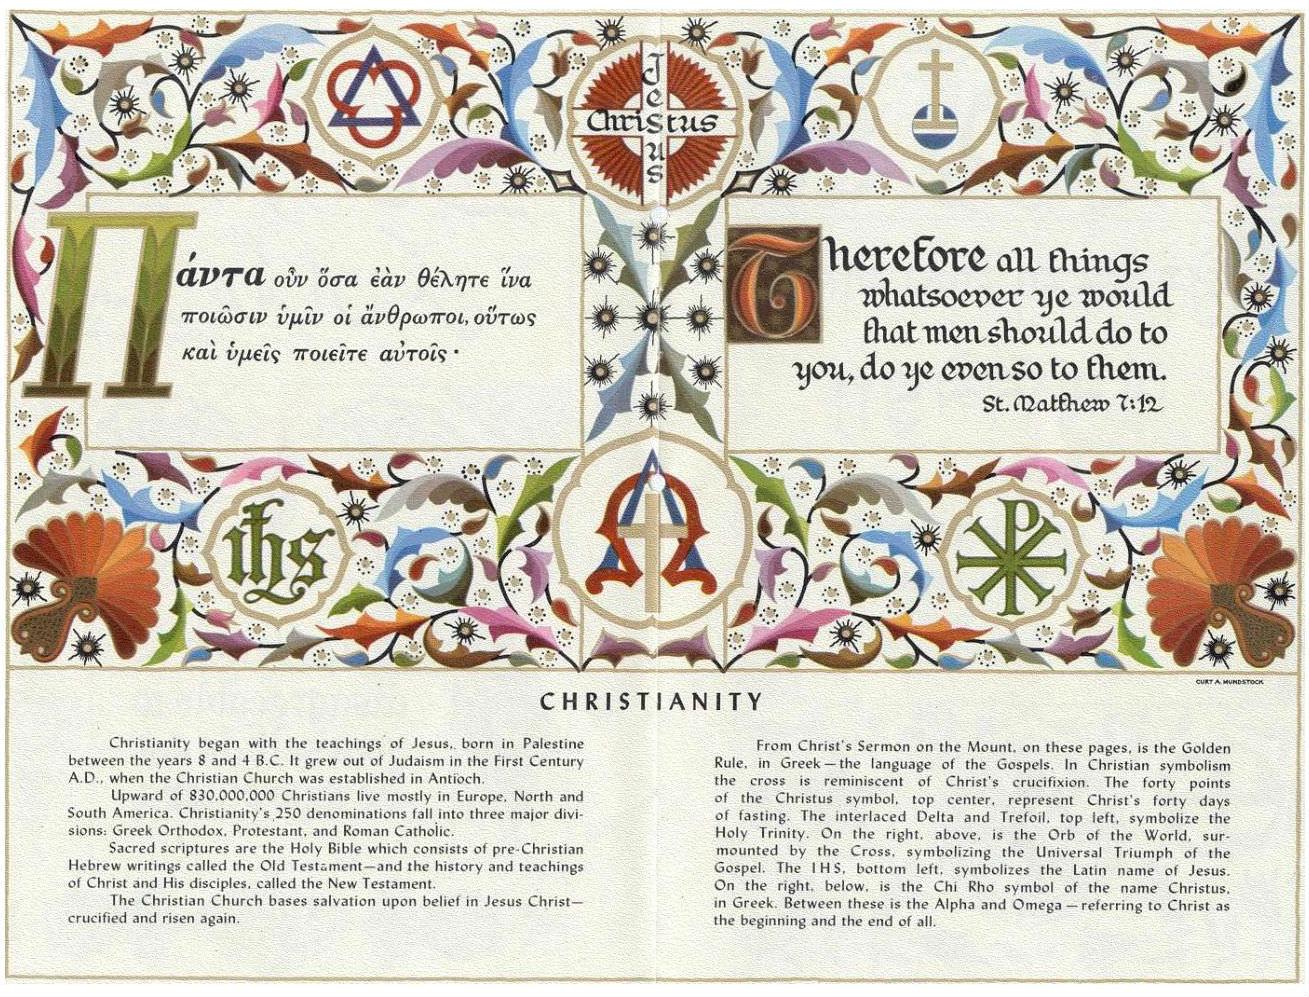 Jesus
Christus
Πάντα οὖν ὅσα ἐὰν θέλητε ἵνα
ποιῶσιν ὑμῖν οἱ ἄνθρωποι, οὕτως
καὶ ὑμεῖς ποιεῖτε αὐτοῖς·
Therefore all things
whatsoever ye would
that men should do to
you, do ye even so to them.
St. Matthew 7:12
ihs
CURT A. MUNDSTOCK
CHRISTIANITY
Christianity began with the teachings of Jesus, born in Palestine
between the years 8 and 4 B.C. It grew out of Judaism in the First Century
A.D., when the Christian Church was established in Antioch.
Upward of 830,000,000 Christians live mostly in Europe, North and
South America. Christianity's 250 denominations fall into three major divi-
sions: Greek Orthodox, Protestant, and Roman Catholic.
Sacred scriptures are the Holy Bible which consists of pre-Christian
Hebrew writings called the Old Testament—and the history and teachings
of Christ and His disciples, called the New Testament.
The Christian Church bases salvation upon belief in Jesus Christ—
crucified and risen again.
From Christ's Sermon on the Mount, on these pages, is the Golden
Rule, in Greek—the language of the Gospels. In Christian symbolism
the cross is reminiscent of Christ's crucifixion. The forty points
of the Christus symbol, top center, represent Christ's forty days
of fasting. The interlaced Delta and Trefoil, top left, symbolize the
Holy Trinity. On the right, above, is the Orb of the World, sur-
mounted by the Cross, symbolizing the Universal Triumph of the
Gospel. The IHS, bottom left, symbolizes the Latin name of Jesus.
On the right, below, is the Chi Rho symbol of the name Christus,
in Greek. Between these is the Alpha and Omega—referring to Christ as
the beginning and the end of all.